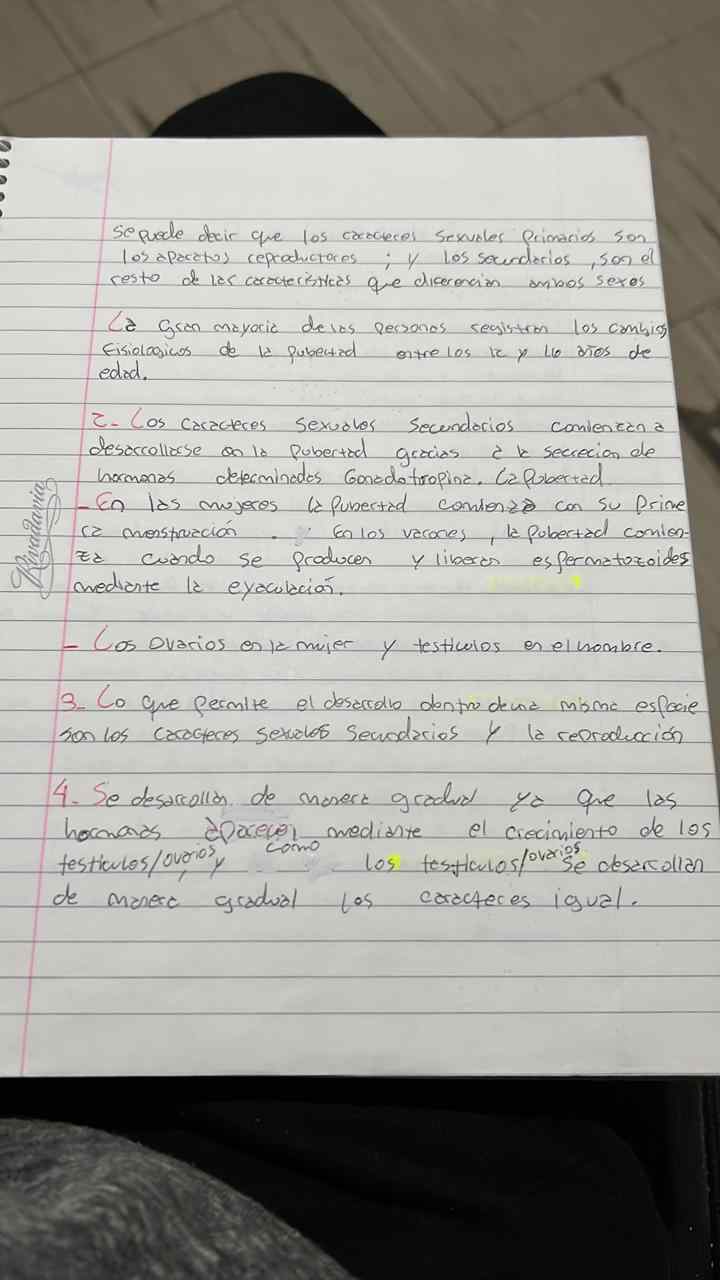 se puede decir que los caracteres sexuales primarios son
los aparatos reproductores ; y los secundarios , son el
resto de las caracteristicas que diferencian ambos sexos
La gran mayoria de las personas registran los cambios
fisiologicos de la pubertad entre los 12 y 16 años de
edad.
2- Los caracteres sexuales secundarios comienzan a
desarrollarse en la pubertad gracias a la secrecion de
hormonas determinadas Gonadotropina. La pubertad
- En las mujeres la pubertad comienza con su prime
ra menstruación . En los varones , la pubertad comien-
za cuando se producen y liberan espermatozoides
mediante la eyaculación.
Rivadavia
- Los ovarios en la mujer y testiculos en el hombre.
3- Lo que permite el desarrollo dentro de una misma especie
son los caracteres sexuales secundarios y la reproducción
4- Se desarrollan de manera gradual ya que las
hormonas aparecen mediante el crecimiento de los
testiculos/ovarios, y como los testiculos/ovarios se desarrollan
de manera gradual los caracteres igual.